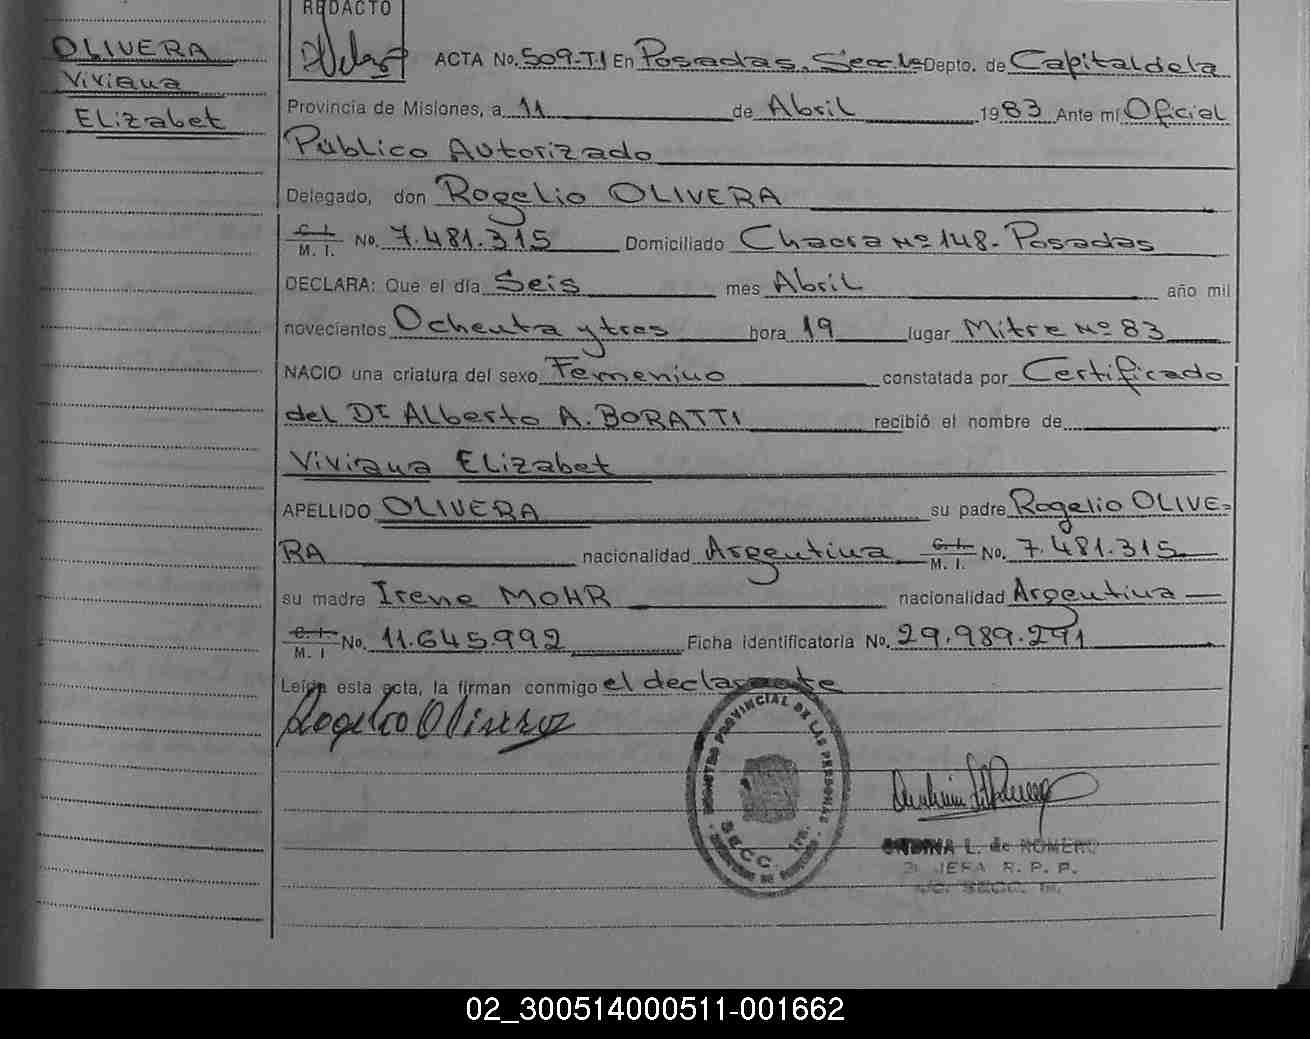 REDACTO
OLIVERA
Viviana
ELizabet
ACTA No. 509-T1 En Posadas, Depto. de Capital de la
Provincia de Misiones, a 11 de Abril 1983 Ante mí Oficial
Público Autorizado
Delegado, don Rogelio OLIVERA
C. I.
M. I. No. 7.481.315 Domiciliado Chacra Nº 148 - Posadas
DECLARA: Que el día Seis mes Abril año mil
novecientos Ochenta y tres hora 19 lugar Mitre Nº 83
NACIO una criatura del sexo Femenino constatada por Certificado
del Dr Alberto A. BORATTI recibió el nombre de
Viviana ELizabet
APELLIDO OLIVERA su padre Rogelio OLIVE=
RA nacionalidad Argentina C. I. M. I. No. 7.481.315
su madre Irene MOHR nacionalidad Argentina
C. I. M. I No. 11.645.992 Ficha identificatoria No. 29.989.291
Leída esta acta, la firman conmigo el declarante
Rogelio Olivera
REGISTRO PROVINCIAL DE LAS PERSONAS
SECC. 1ra.
ONDINA L. de ROMERO
JEFA R. P. P.
02_300514000511-001662